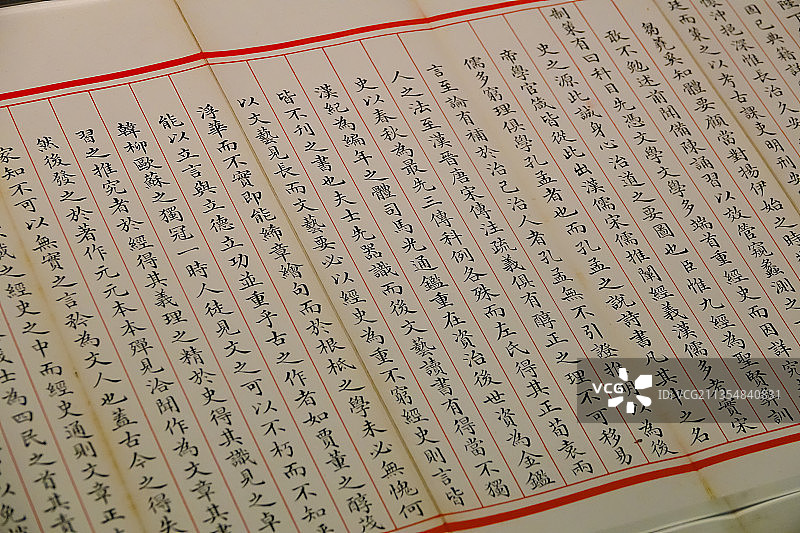 因已典籍
懷沖挹深惟長治久安
建而策之以考古課吏明刑
芻蕘奚知體要顧當對揚伊始之時
敢不勉述前聞備陳誦習以放管窺蠡測之
制策有曰科目先憑文學文學多端有重經史而因謀究
史之源此誠身心治道之要圖也臣惟九經為聖賢彝訓
帝學官箴皆從此出漢儒宋儒推闡經義漢儒多考實宋
儒多窮理俱學孔孟者也而孔孟之說詩書凡其之名
言至論有補於治己治人者孔孟無不引證以為後
人之法至漢晉唐宋傳注疏義俱有醇正之理不可移易
史以春秋為最先三傳科例各殊而左氏得其正荀袁兩
漢紀為編年之體司馬光通鑑重在資治後世資為金鑑
皆不刊之書也夫士先器識而後文藝讀書有得當不獨
以文藝見長而文藝要必以經史為重不窮經史則言皆
浮華而不實即能絺章繪句而於根柢之學未必無愧何
能以立言與立德立功並重乎古之作者如賈董之醇茂
韓柳歐蘇之獨冠一時人徒見文之可以不朽而不知平
習之推究者於經得其義理之精於史得其識見之卓
然後發之於著作元元本本殫見洽聞作為文章其書
家知不可以無實之言矜為文人也蓋古今之得失
識之經史之中而經史通則文章正
士為四民之首其責
以免
VCG
VCG211354840831